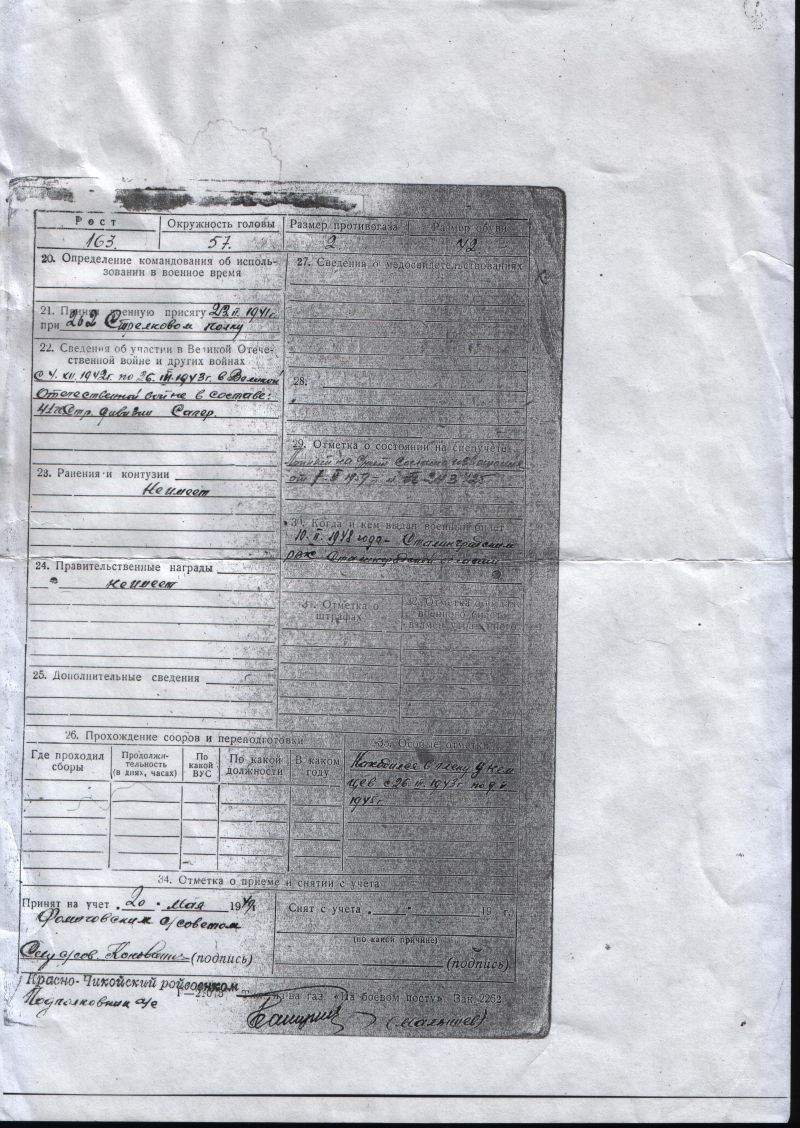 Рост Окружность головы Размер противогаза Размер обуви
163. 57. 2 42
20. Определение командования об исполь-
зовании в военное время
21. Принял военную присягу 23 II 1941г.
при 262 Стрелковом полку
22. Сведения об участии в Великой Отече-
ственной войне и других войнах
с 4. XII. 1942г. по 26. III. 1943г. в Великой
Отечественной войне в составе:
Стр. дивизии Сапер.
23. Ранения и контузии
Неимеет
24. Правительственные награды
неимеет
25. Дополнительные сведения
27. Сведения о медосвидетельствованиях
28.
29. Отметка о состоянии на спецучете
от
30. Когда и кем выдан военный билет
10. II. 1948 года - Сталинградским
РВК Сталинградской области
31. Отметка о
штрафах
32. Отметка о
26. Прохождение сборов и переподготовки
Где проходил
сборы
Продолжи-
тельность
(в днях, часах)
По
какой
ВУС
По какой
должности
В каком
году
33. Особые отметки
Находился в плену у нем
цев с 26 III. 1943г. по 9 V
1945г.
34. Отметка о приеме и снятии с учета
Принят на учет 20 мая 1949г.
с/советом
(подпись)
Снят с учета 19 г.
(по какой причине)
(подпись)
Красно-Чикойский ройвоенком
Подполковник а/с
Г—22073 Тип. изд-ва газ. «На боевом посту» Зак. 2262
(Малышев)